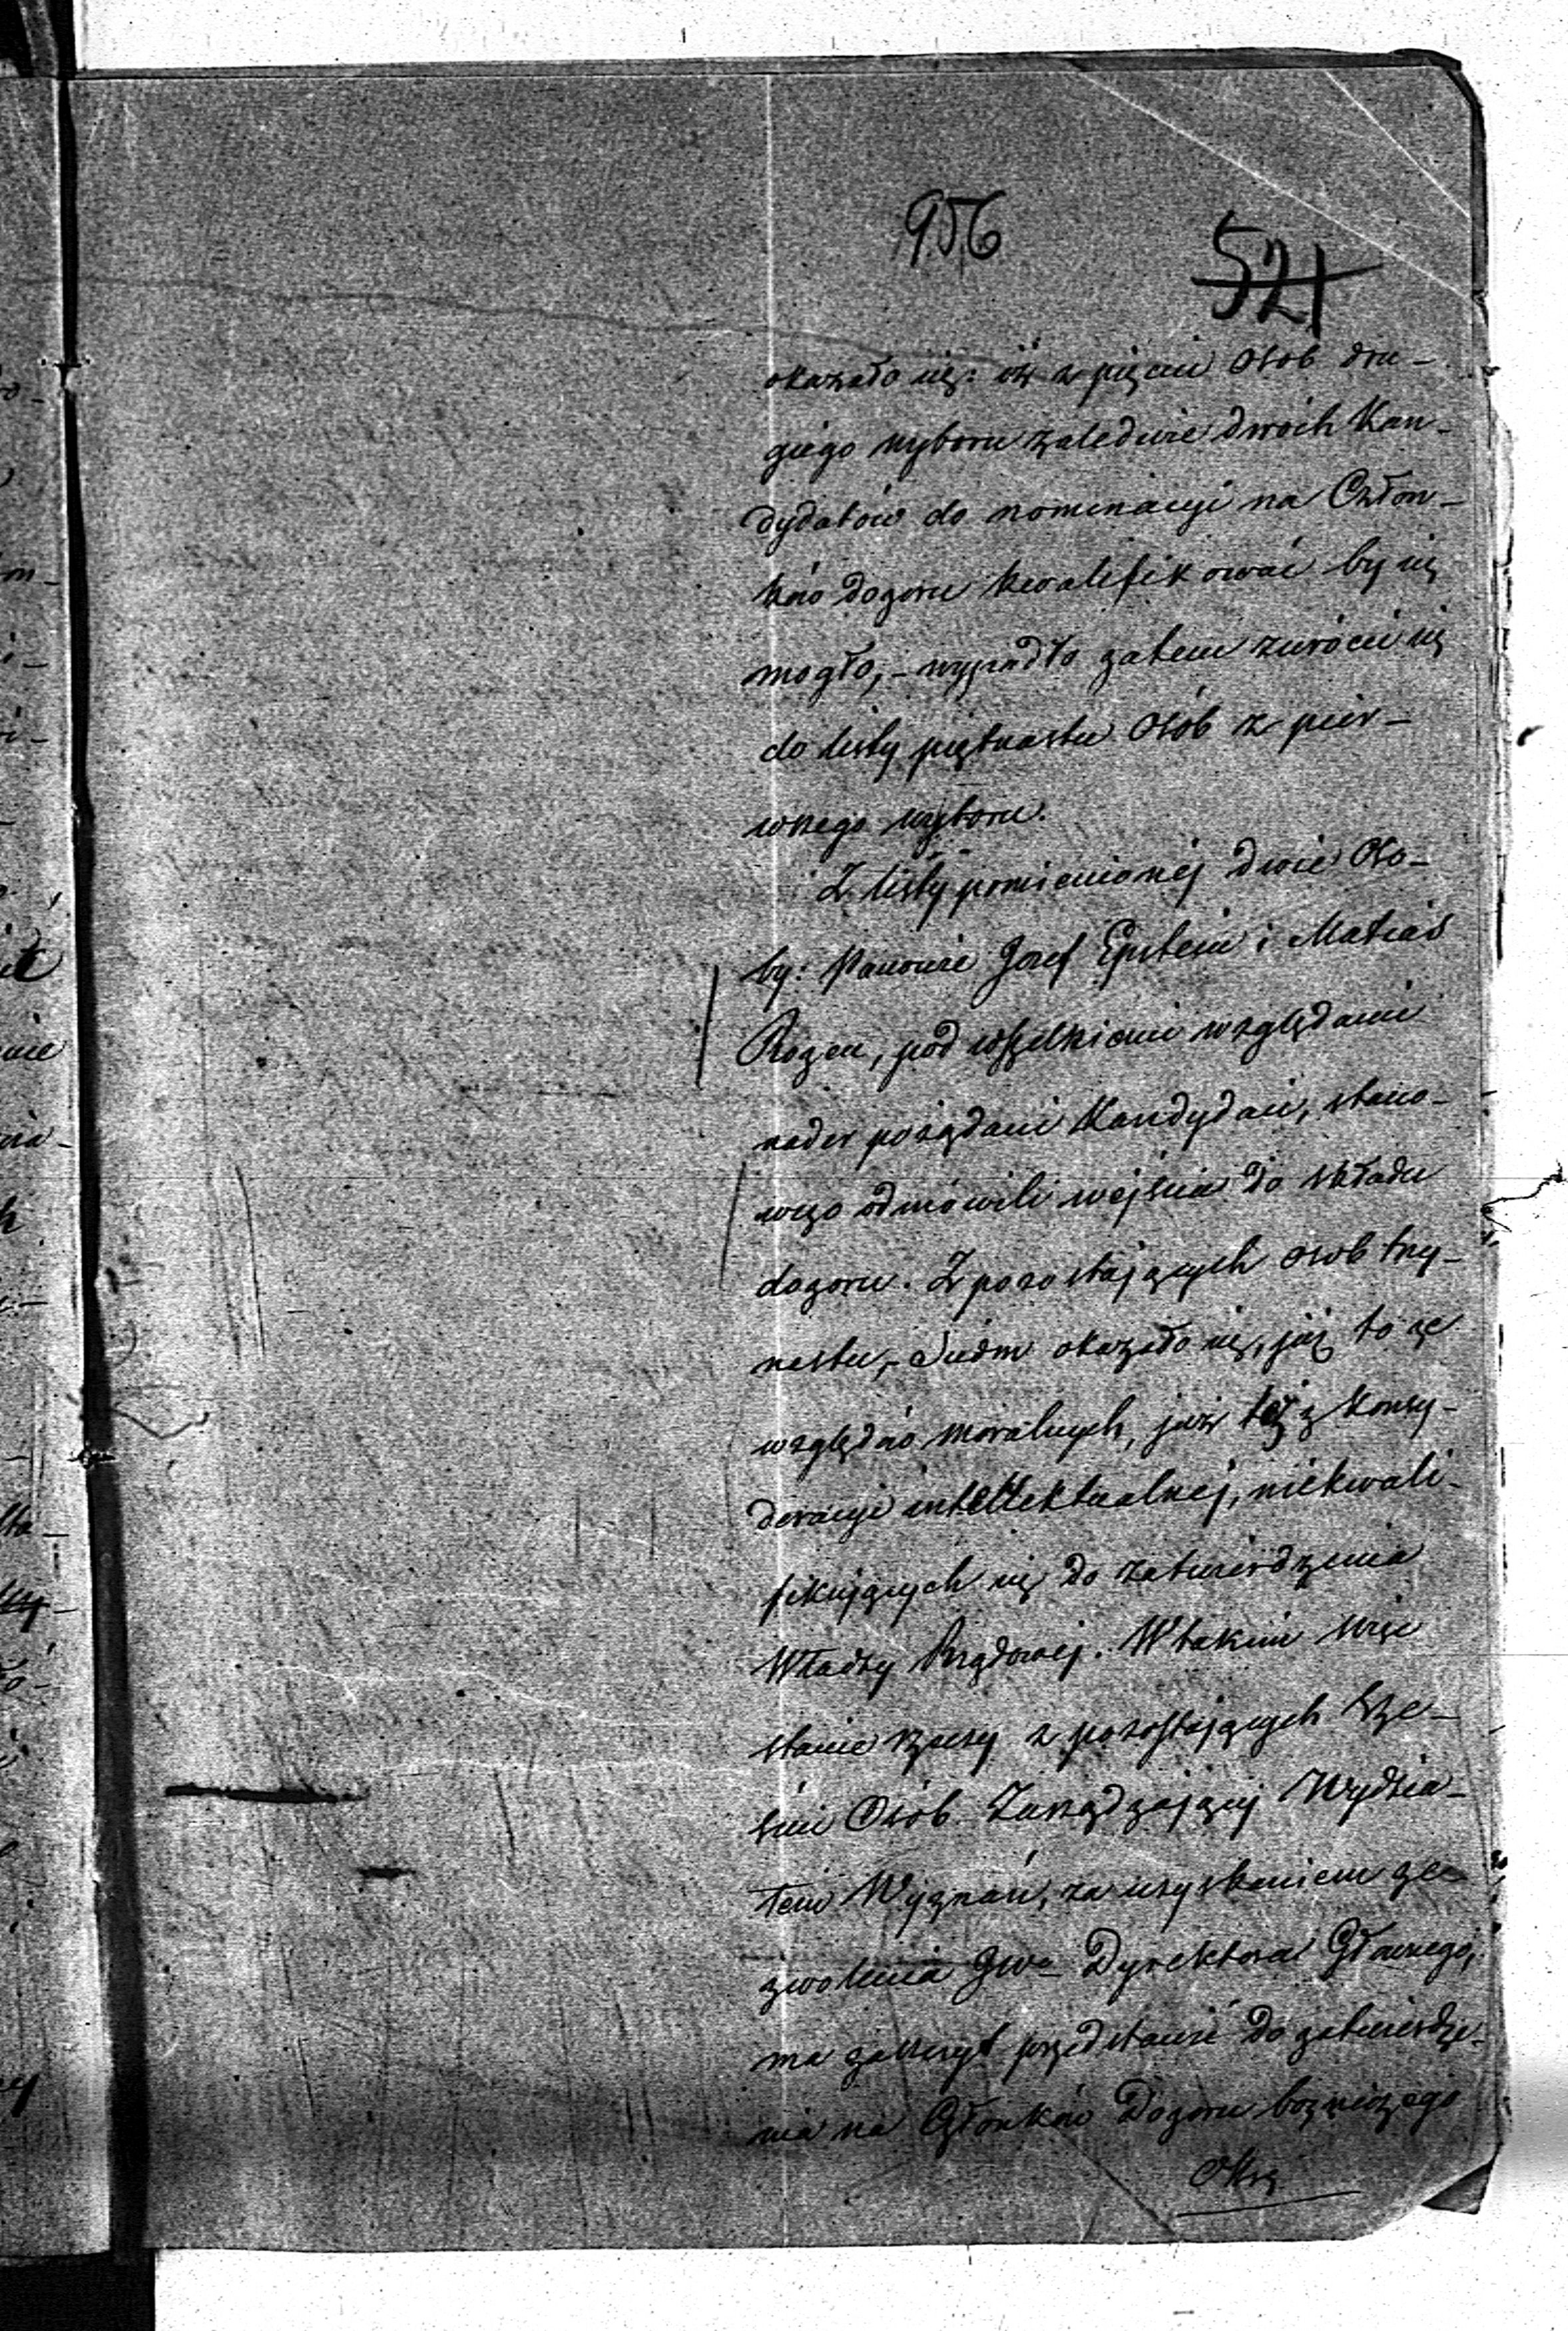 956
521
okazało się: iż z pięciu Osób dru-
giego wyboru zaledwie dwóch Kan-
dydatów do nominacyi na Człon-
ków dozoru kwalifikować by się
mogło, - wypadło zatem zwrócić się
do listy piętnastu Osób z pier-
wszego wyboru.
Z listy pomienionéj dwie Oso-
by: Panowie Jozef Epstein i Matias
Rozen, pod wszelkiemi względami
nader pożądani Kandydaci, stano-
wczo odmówili wejścia do składu
dozoru. Z pozostających osób trzy-
nastu, - siedm okazało się, już to ze
względów moralnych, już też z konsy-
deracyi intellektualnéj, niekwali-
fikujących się do zatwierdzenia
Władzy Rządowéj. W takim więc
stanie rzeczy z pozostających sze-
ściu Osób Zarządzający Wydzia-
łem Wyznań, za uzyskaniem ze-
zwolenia JWo Dyrektora Głównego,
ma zaszczyt przedstawić do zatwierdze-
nia na Członków Dozoru bożniczego